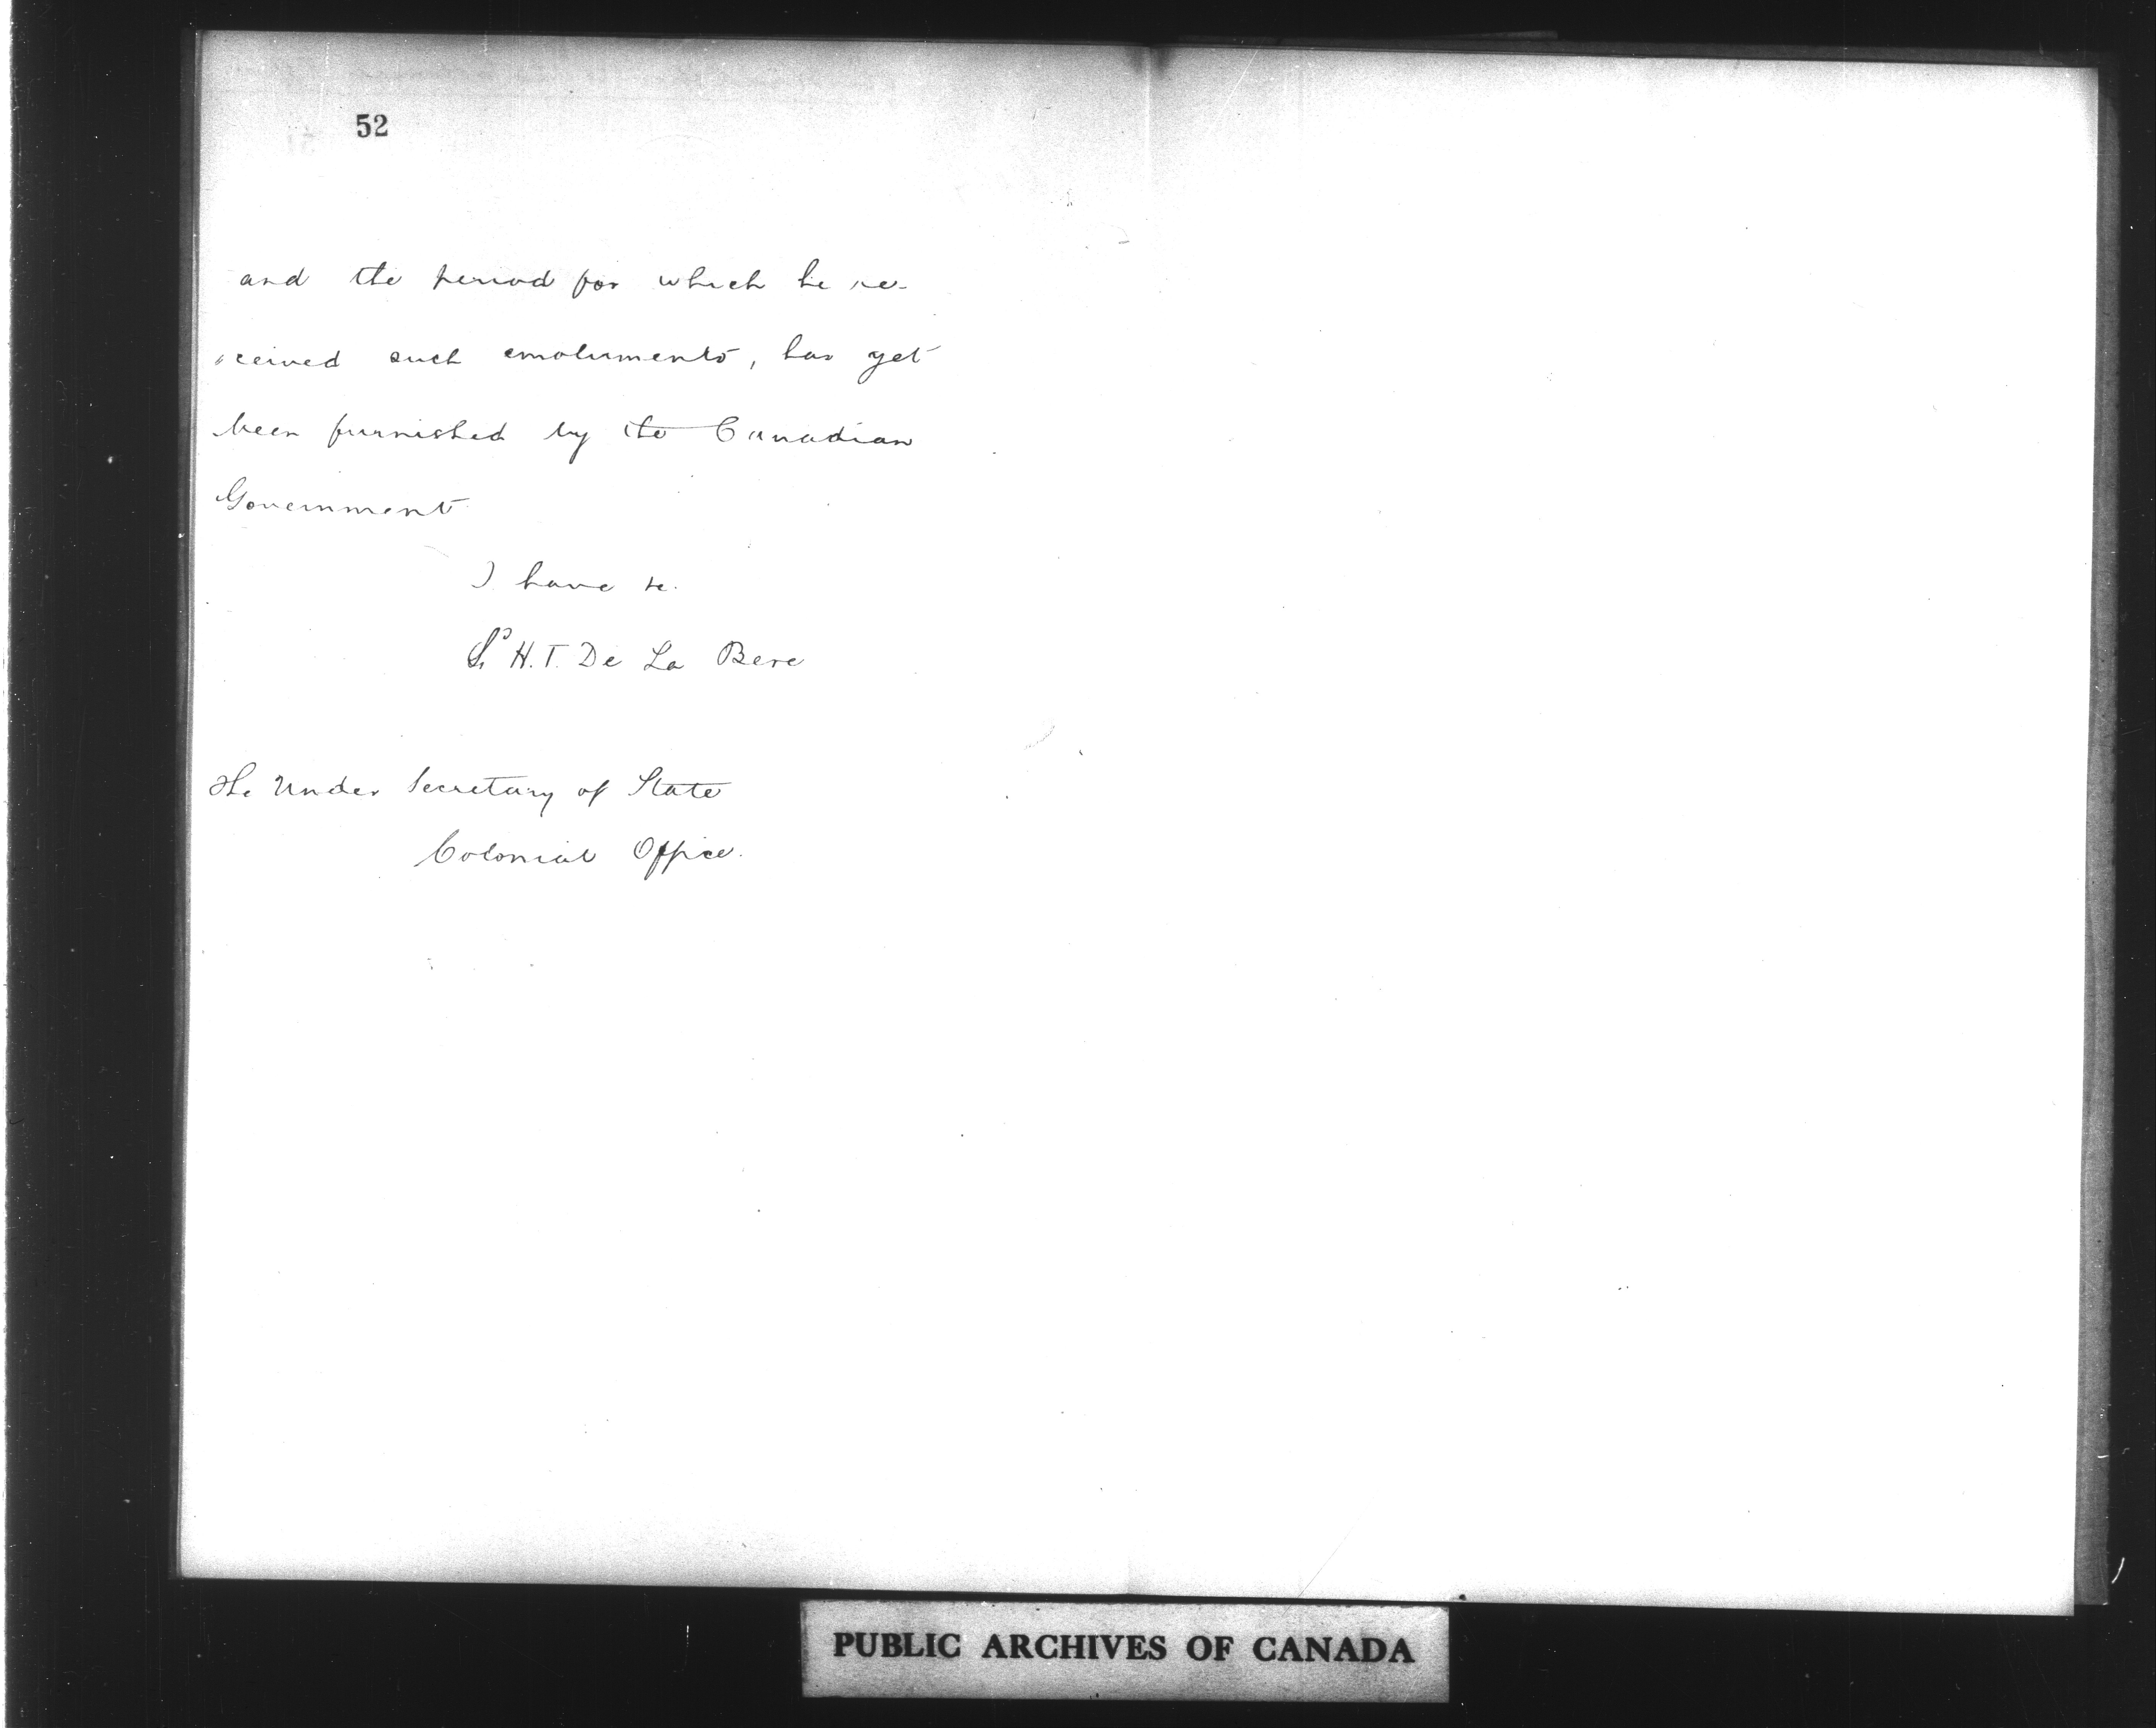 52
and the period for which he re-
ceived such emoluments, has yet
been furnished by the Canadian
Government
I have &c.
Sd H. T. De La Bere
The Under Secretary of State
Colonial Office.
PUBLIC ARCHIVES OF CANADA